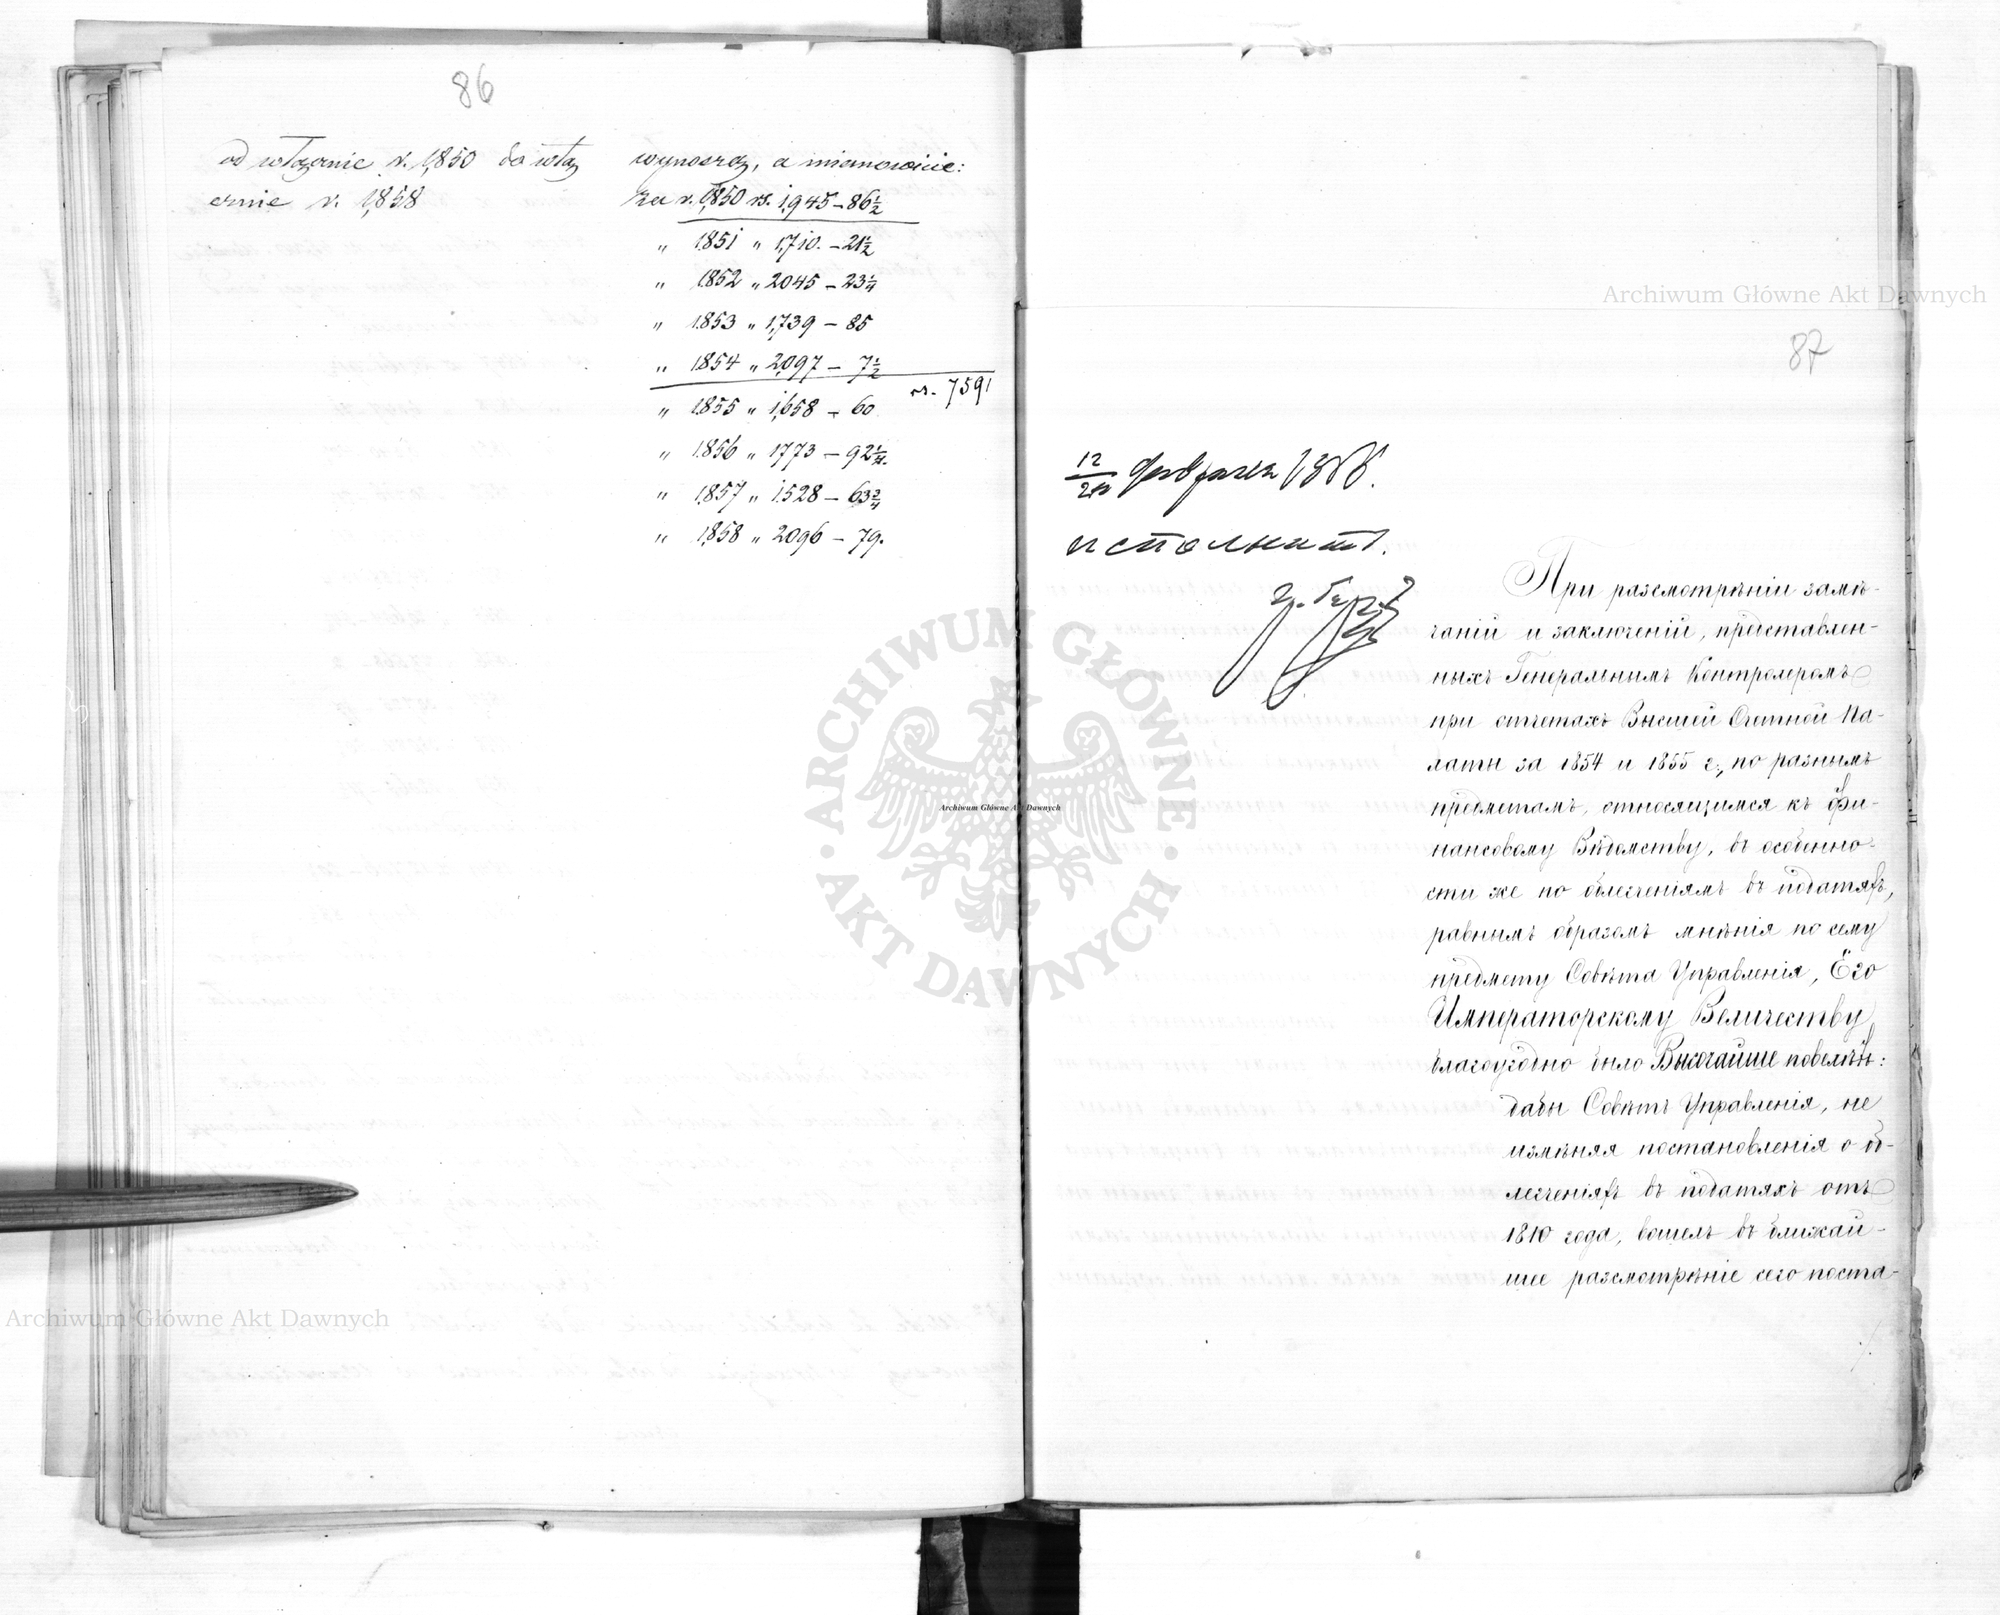 86
od włącznie r. 1,850 do włą
cznie r. 1,858
wynoszą, a mianowicie:
Za r. 1,850 rs. 1,945 – 86 1/2
" 1851 " 1,710. – 21 1/2
" 1852 " 2045 – 23 1/4
" 1853 " 1,739 – 85
" 1854 " 2,097 – 7 1/2
rs. 7591
" 1855 " 1,658 – 60
" 1856 " 1773 – 92 1/4.
" 1,857 " 1.528 – 63 3/4
" 1,858 " 2096 – 79.
Archiwum Główne Akt Dawnych
87
12/24 февраля
исполнить.
При разсмотрѣніи замѣ-
чаній и заключеній, представлен-
ныхъ Генеральнымъ Контролеромъ
при отчетахъ Высшей Счетной Па-
латы за 1854 и 1855 г:, по разнымъ
предметамъ, относящимся къ Фи-
нансовому Вѣдомству, въ особенно-
сти же по облегченіямъ въ податяхъ,
равнымъ образомъ мнѣнія по сему
предмету Совѣта Управленія, Его
Императорскому Величеству
благоугодно было Высочайше повелѣть:
дабы Совѣтъ Управленія, не
измѣняя постановленія о об-
легченіяхъ въ податяхъ отъ
1810 года, вошелъ въ ближай-
шее разсмотрѣніе сего поста-
ARCHIWUM GŁÓWNE · AKT DAWNYCH ·
Archiwum Główne Akt Dawnych
Archiwum Główne Akt Dawnych